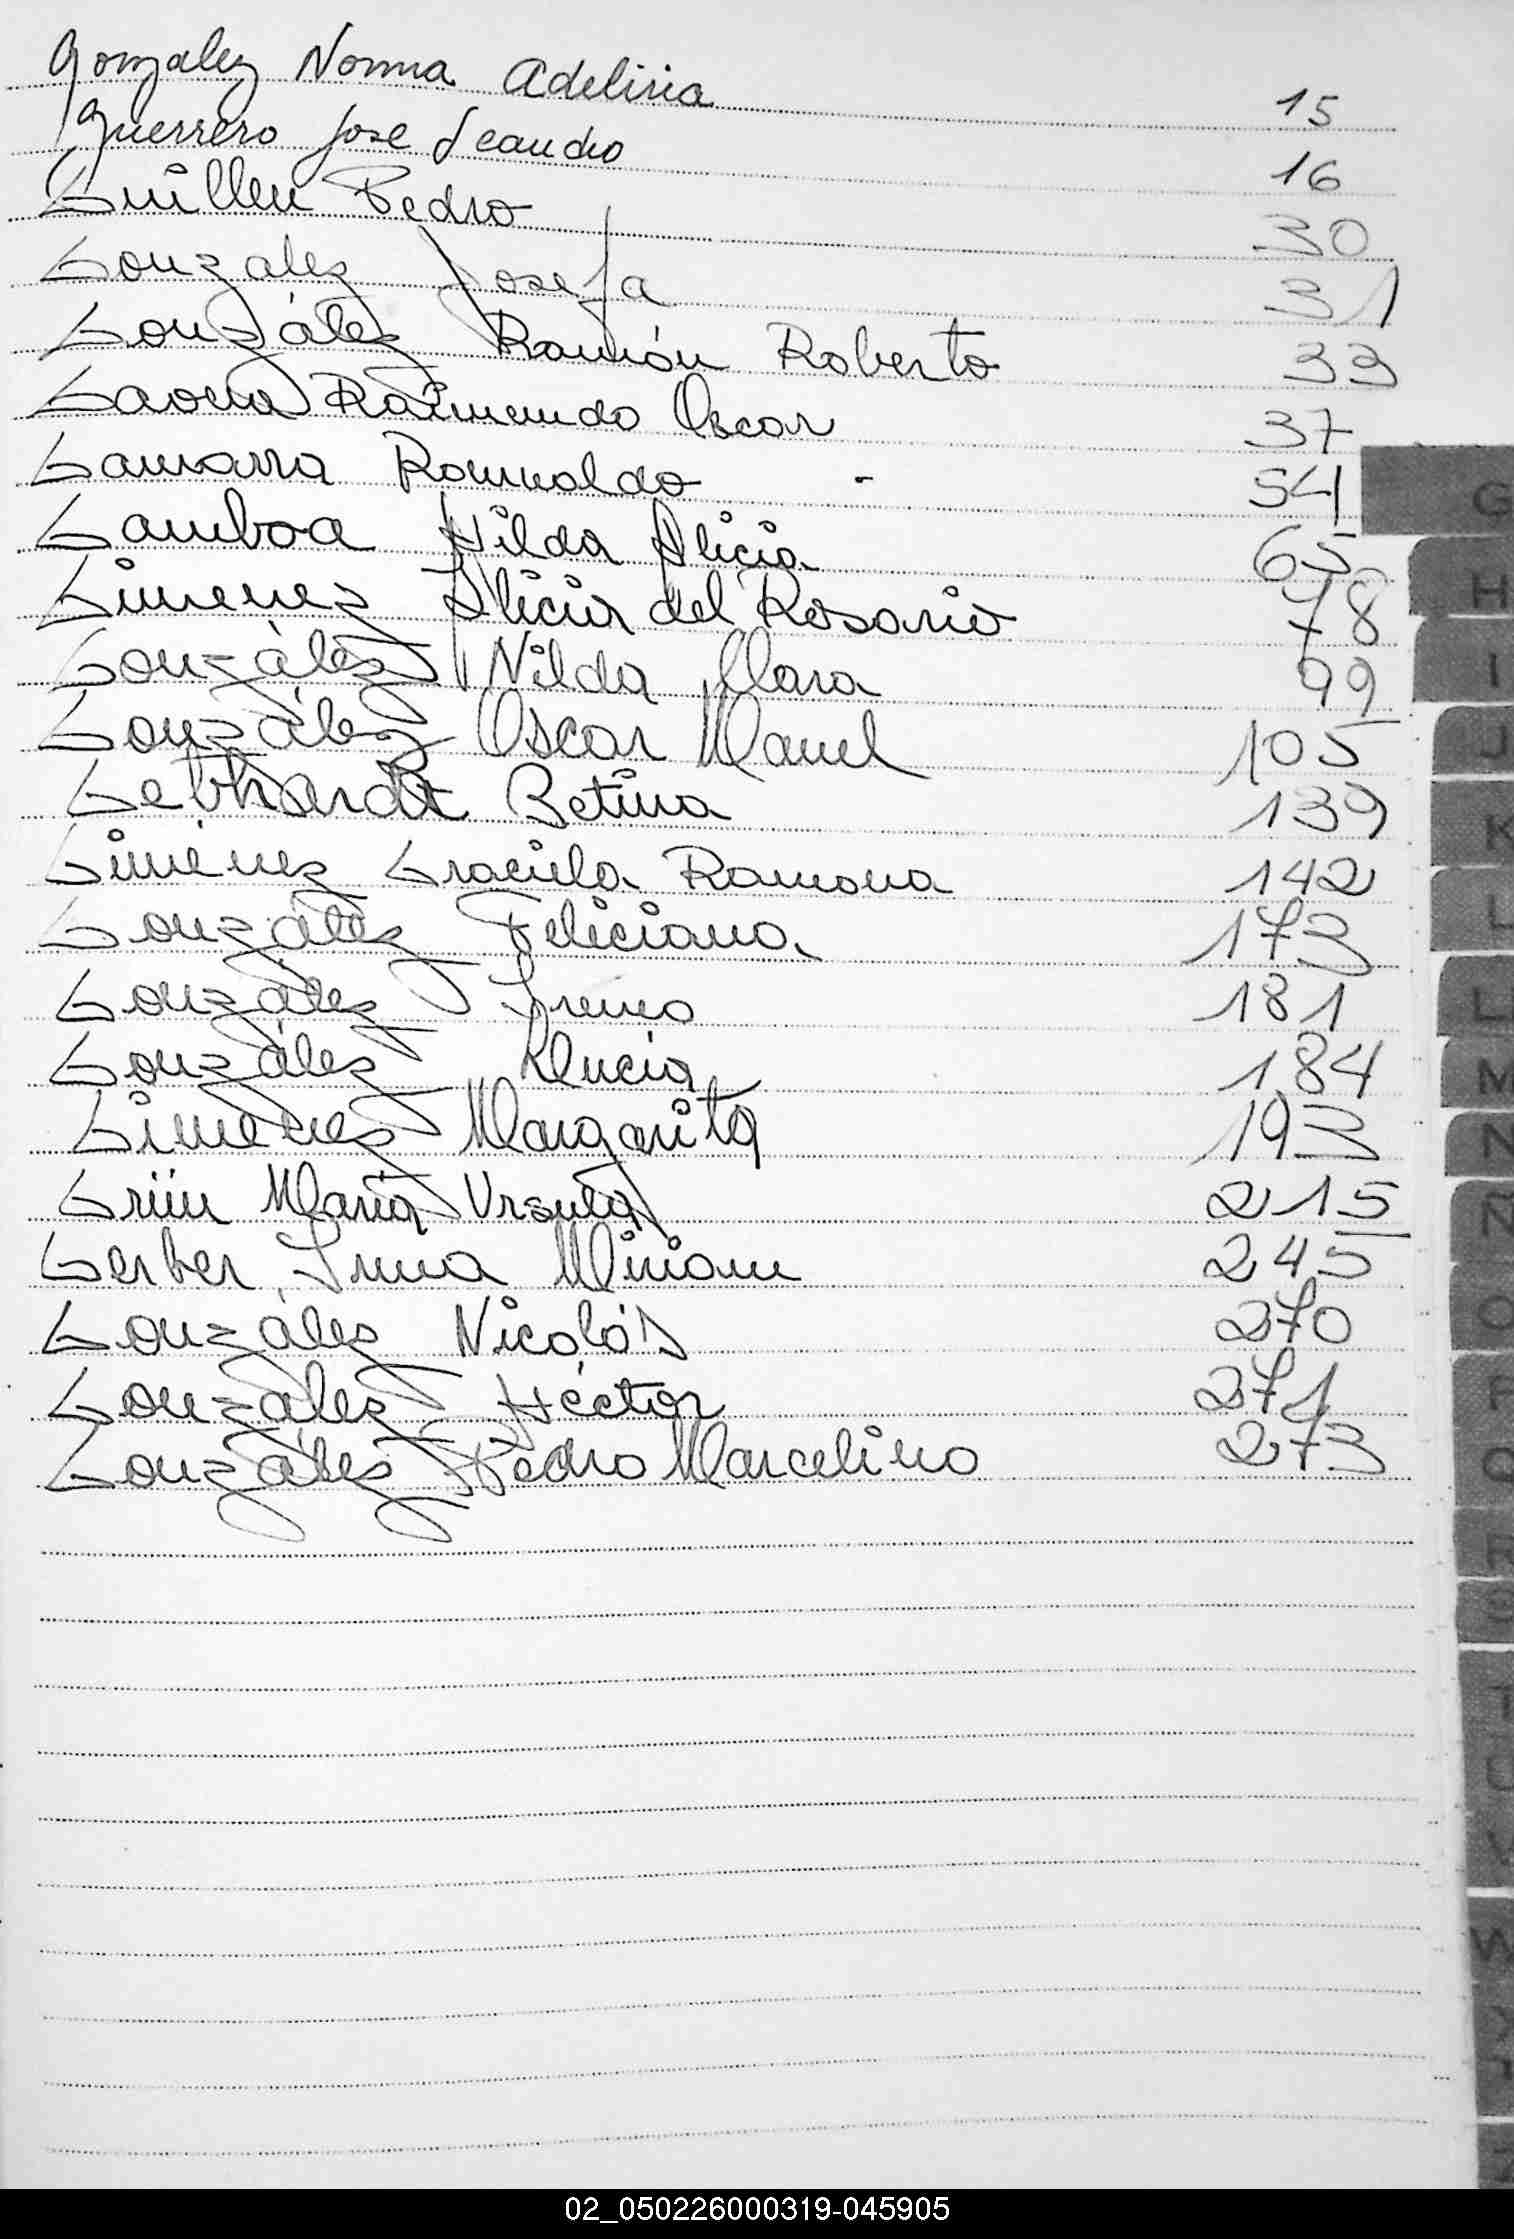 Gonzalez Norma Adelina 15
Guerrero Jose Leandro 16
Guillen Pedro 30
González Josefa 31
González Ramón Roberto 33
Gaona Raimundo Oscar 37
Gamarra Romualdo - 54
Gamboa Hilda Alicia 65
Gimenez Alicia del Rosario 78
González Nilda Clara 99
González Oscar Manuel 105
Gebhardt Betina 139
Giménez Graciela Ramona 142
González Feliciana 173
González Ireneo 181
González 184
Giménez Margarita 193
Grün María Ursula 215
Gerber Irma Miriam 245
González Nicolás 270
González Héctor 271
González Pedro Marcelino 273
G
H
I
J
K
L
LL
M
N
Ñ
O
P
Q
R
S
T
U
V
W
X
Y
Z
02_050226000319-045905